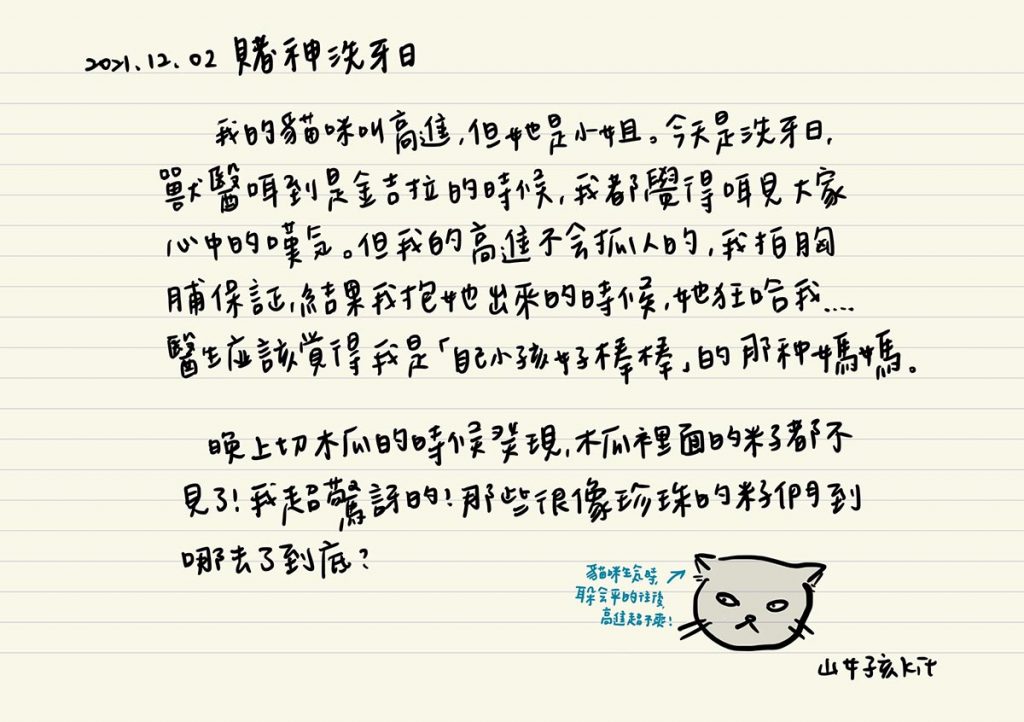 2021.12.02 賭神洗牙日
我的貓咪叫高進,但她是小姐。今天是洗牙日,
獸醫咡到是金吉拉的時候,我都覺得咡見大家
心中的嘆氣。但我的高進不会抓人的,我拍胸
脯保証,結果我抱她出來的時候,她狂哈我....
醫生应該覚得我是「自己小孩好棒棒」的那种媽媽。
晚上切木瓜的時候発現,木瓜裡面的籽都不
見了!我超驚訝的!那些很像珍珠的籽們到
哪去了到底?
貓咪生氣時,
耳朵会平的往後,
高進超不爽!
山女孩kit